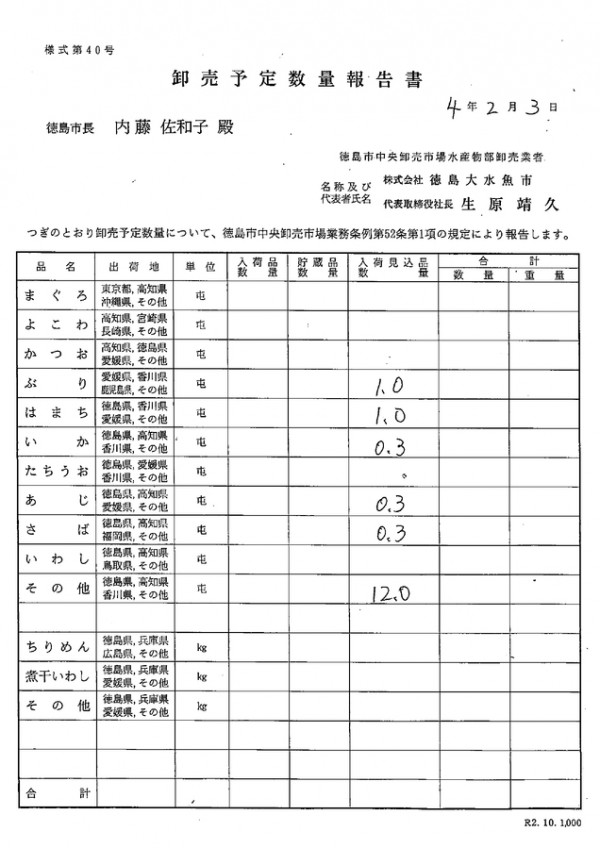 様式第40号
卸売予定数量報告書
4年2月3日
徳島市長 内藤 佐和子 殿
徳島市中央卸売市場水産物部卸売業者
名称及び 株式会社 徳島大水魚市
代表者氏名 代表取締役社長 生原靖久
つぎのとおり卸売予定数量について、徳島市中央卸売市場業務条例第52条第1項の規定により報告します。
品名 出荷地 単位 入荷品数量 貯蔵品数量 入荷見込品数量 合計
数量 重量
まぐろ 東京都,高知県 屯
沖縄県,その他
よこわ 高知県,宮崎県 屯
長崎県,その他
かつお 高知県,徳島県 屯
愛媛県,その他
ぶり 愛媛県,香川県 屯 1.0
鹿児島県,その他
はまち 徳島県,香川県 屯 1.0
愛媛県,その他
いか 徳島県,高知県 屯 0.3
香川県,その他
たちうお 徳島県,愛媛県 屯
香川県,その他
あじ 徳島県,高知県 屯 0.3
愛媛県,その他
さば 徳島県,高知県 屯 0.3
福岡県,その他
いわし 徳島県,高知県 屯
鳥取県,その他
その他 徳島県,高知県 屯 12.0
香川県,その他
ちりめん 徳島県,兵庫県 kg
広島県,その他
煮干いわし 徳島県,兵庫県 kg
愛媛県,その他
その他 徳島県,兵庫県 kg
愛媛県,その他
合計
R2.10.1,000